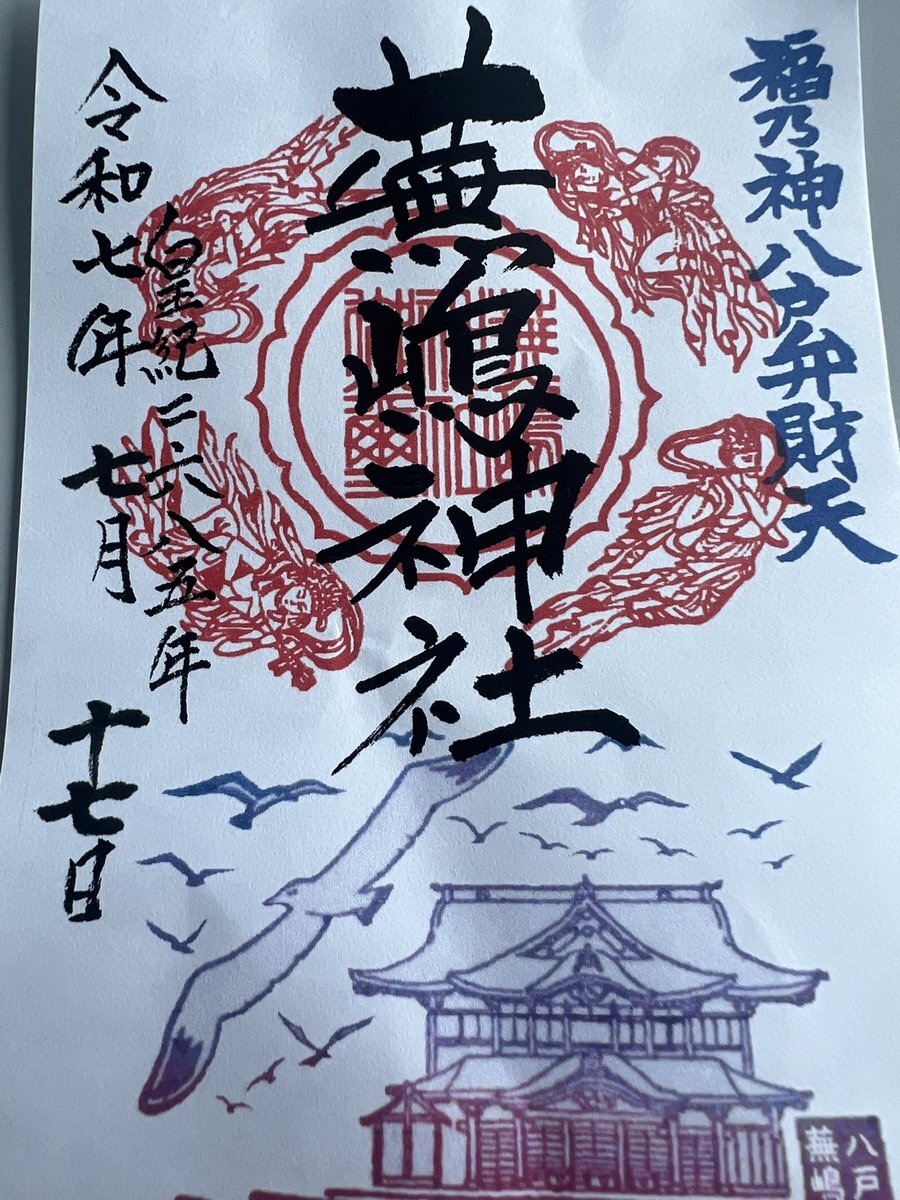 福乃神八戸弁財天
蕪嶋神社
皇紀二六八五年
令和七年 七月 十七日
八戸
蕪嶋